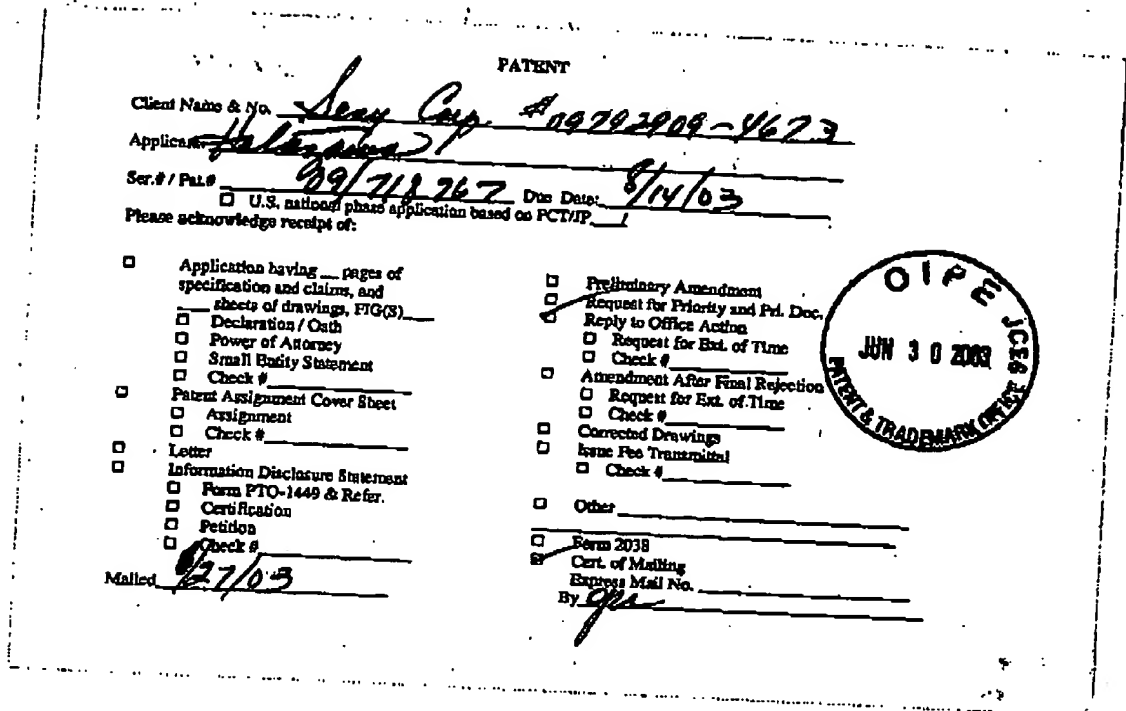 PATENT
Client Name & No. Sony Corp. #09792909-4673
Applicant:
Ser.# / Pat.# 09/718767 Due Date: 8/14/03
☐ U.S. national phase application based on PCT/JP___/
Please acknowledge receipt of:
☐ Application having __ pages of
specification and claims, and
___ sheets of drawings, FIG(S)___
☐ Declaration / Oath
☐ Power of Attorney
☐ Small Entity Statement
☐ Check #
☐ Patent Assignment Cover Sheet
☐ Assignment
☐ Check #
☐ Letter
☐ Information Disclosure Statement
☐ Form PTO-1449 & Refer.
☐ Certification
☐ Petition
☐ Check #
Mailed 6/27/03
☐ Preliminary Amendment
☐ Request for Priority and Pri. Doc.
☐ Reply to Office Action
☐ Request for Ext. of Time
☐ Check #
☐ Amendment After Final Rejection
☐ Request for Ext. of Time
☐ Check #
☐ Corrected Drawings
☐ Issue Fee Transmittal
☐ Check #
☐ Other
☐ Form 2038
☐ Cert. of Mailing
Express Mail No.
By
OIPE JC66
JUN 30 2003
PATENT & TRADEMARK OFFICE